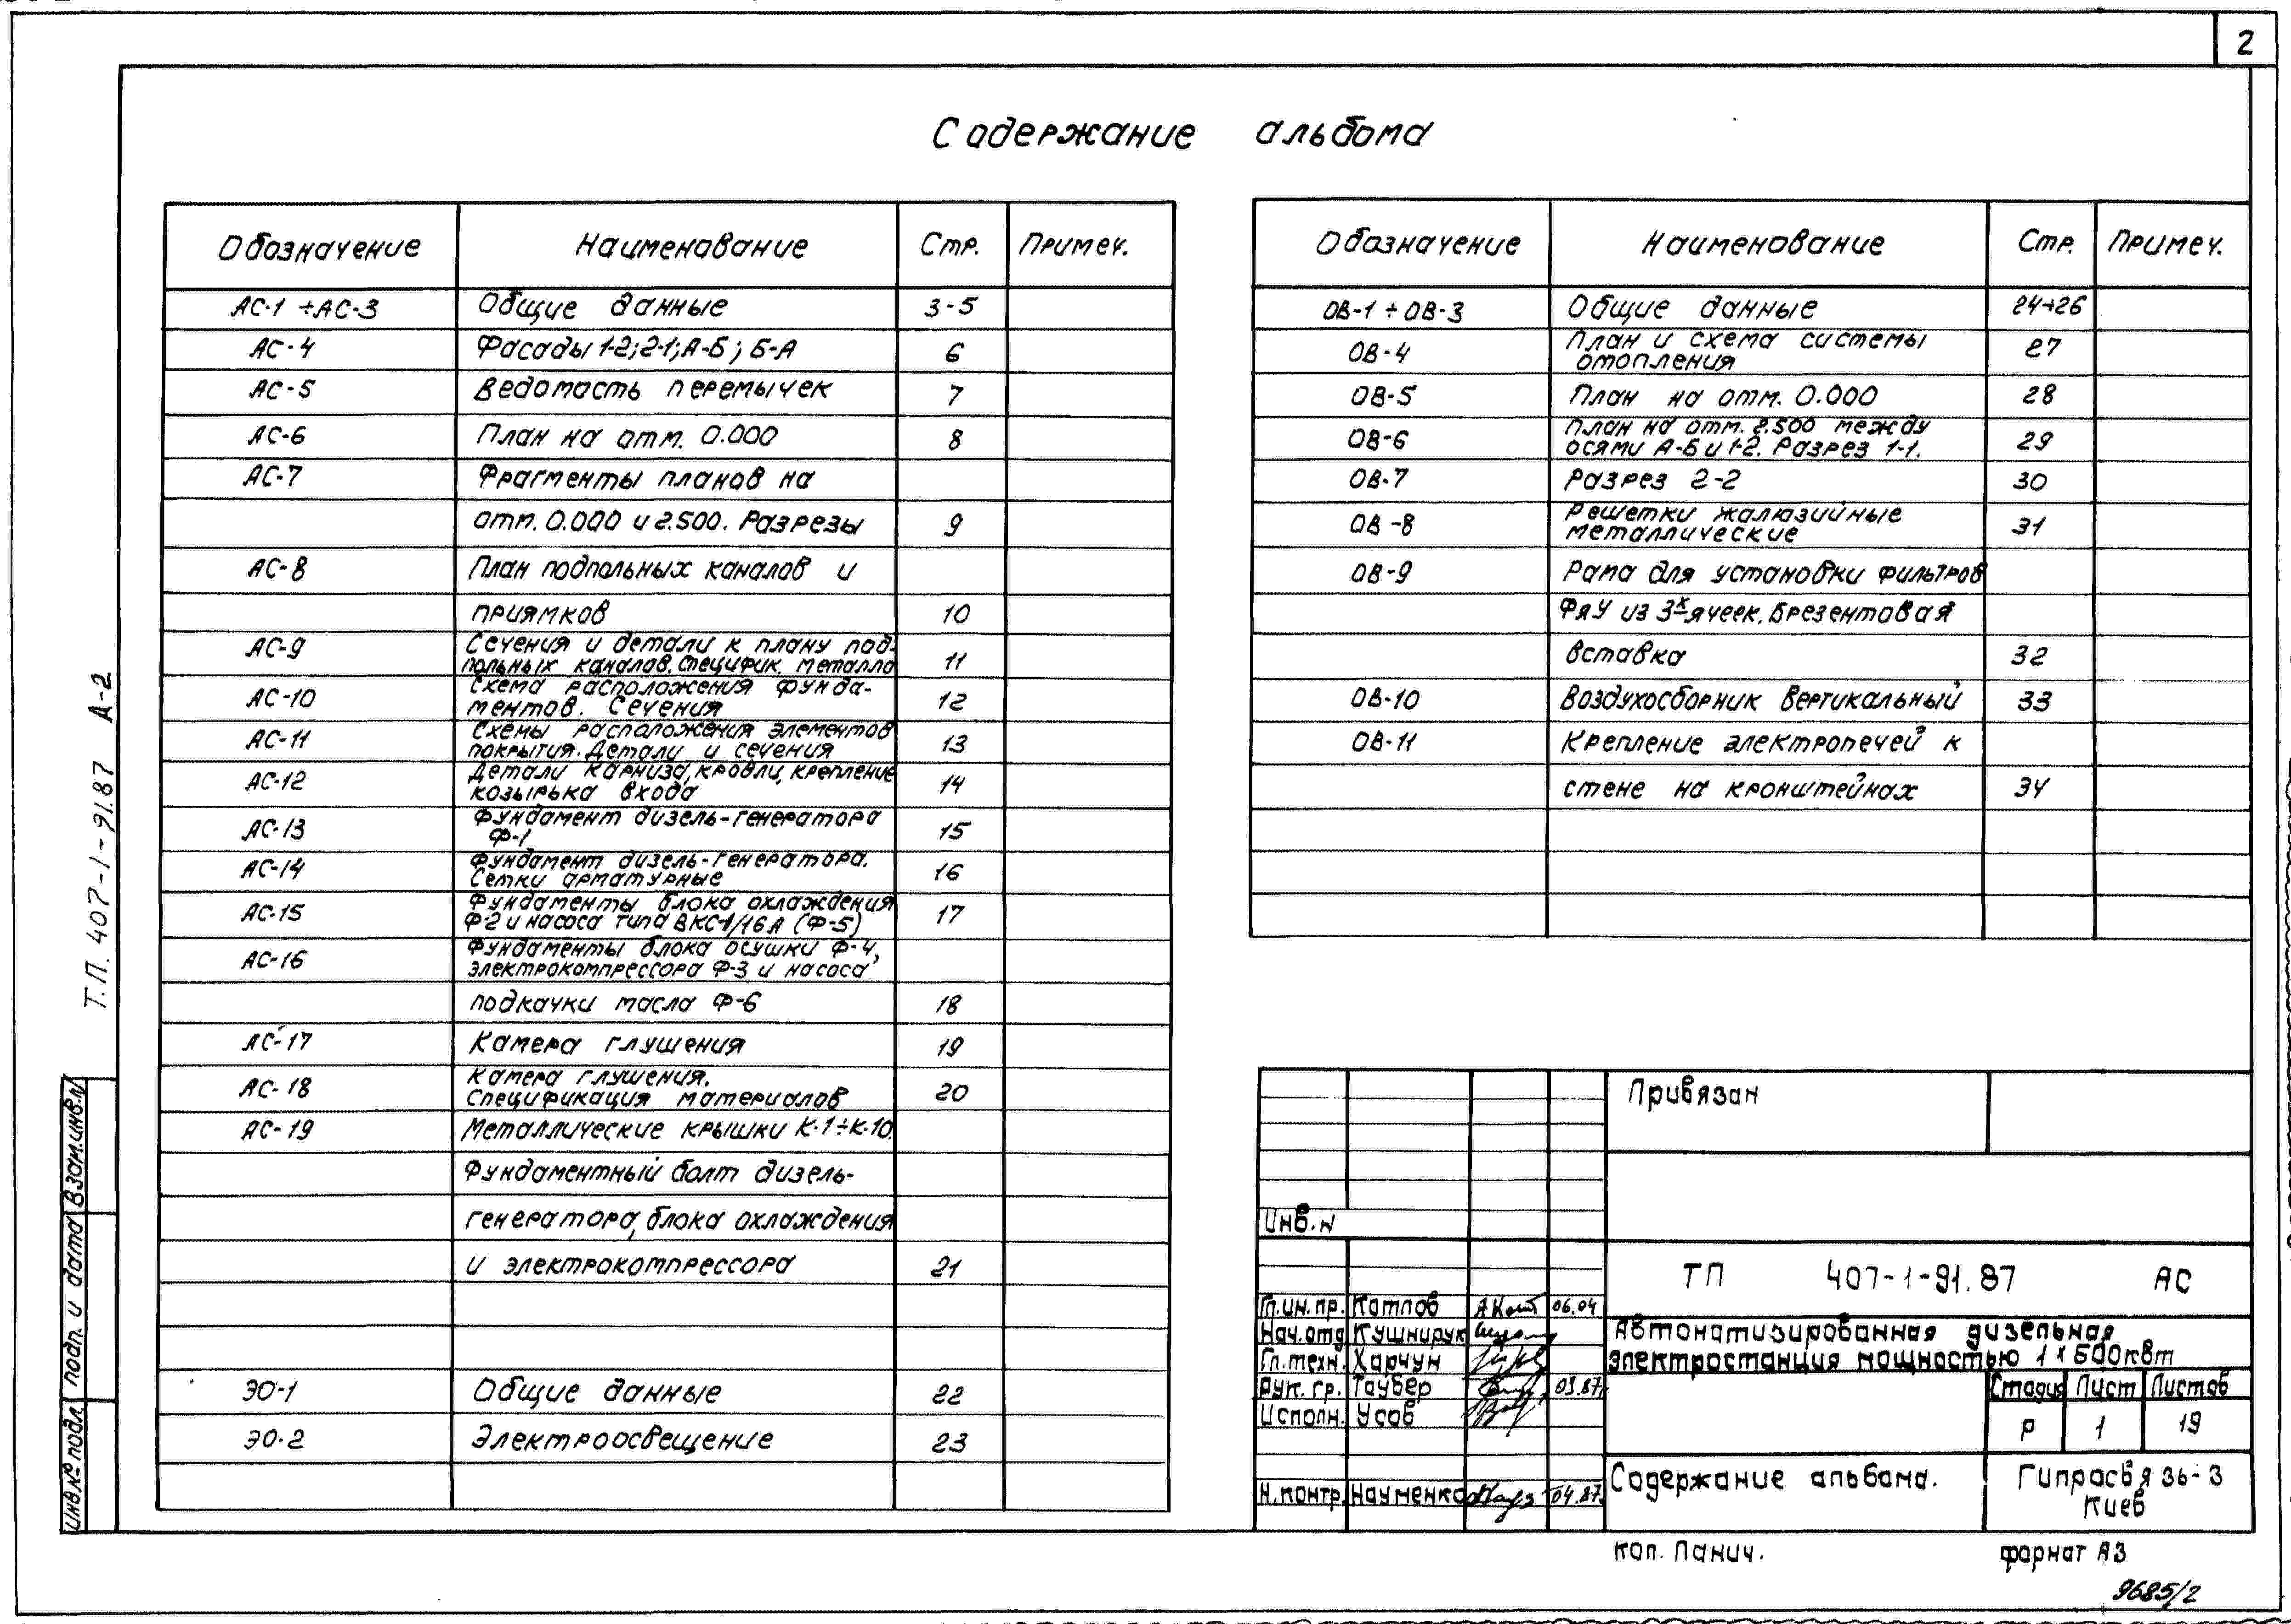 2
Содержание альбома
Обозначение Наименование Стр. Примеч.
АС-1 ÷ АС-3 Общие данные 3-5
АС-4 Фасады 1-2; 2-1; А-Б; Б-А 6
АС-5 Ведомость перемычек 7
АС-6 План на отм. 0.000 8
АС-7 Фрагменты планов на
отм. 0.000 и 2.500. Разрезы 9
АС-8 План подпольных каналов и
приямков 10
АС-9 Сечения и детали к плану под-
польных каналов. Специфик. металла 11
АС-10 Схема расположения фунда-
ментов. Сечения 12
АС-11 Схемы расположения элементов
покрытия. Детали и сечения 13
АС-12 Детали карниза, кровли, крепление
козырька входа 14
АС-13 Фундамент дизель-генератора
Ф-1 15
АС-14 Фундамент дизель-генератора.
Сетки арматурные 16
АС-15 Фундаменты блока охлаждения
Ф-2 и насоса типа ВКС-1/16А (Ф-5) 17
АС-16 Фундаменты блока осушки Ф-4,
электрокомпрессора Ф-3 и насоса
подкачки масла Ф-6 18
АС-17 Камера глушения 19
АС-18 Камера глушения.
Спецификация материалов 20
АС-19 Металлические крышки К-1÷К-10.
Фундаментный болт дизель-
генератора, блока охлаждения
и электрокомпрессора 21
ЭО-1 Общие данные 22
ЭО-2 Электроосвещение 23
Обозначение Наименование Стр. Примеч.
ОВ-1 ÷ ОВ-3 Общие данные 24÷26
ОВ-4 План и схема системы
отопления 27
ОВ-5 План на отм. 0.000 28
ОВ-6 План на отм. 2.500 между
осями А-Б и 1-2. Разрез 1-1. 29
ОВ-7 Разрез 2-2 30
ОВ-8 Решетки жалюзийные
металлические 31
ОВ-9 Рама для установки фильтров
ФяУ из 3х ячеек. Брезентовая
вставка 32
ОВ-10 Воздухосборник вертикальный 33
ОВ-11 Крепление электропечей к
стене на кронштейнах 34
Т.П. 407-1-91.87 А-2
Взам.инв.N
Подп. и дата
Инв.№ подл.
Привязан
Инв. N
ТП 407-1-91.87 АС
Гл.ин.пр. Котлов 06.04
Нач.отд Кушнирук
Гл.техн. Харчун
Рук. гр. Таубер 03.87
Исполн. Усов
Н.контр. Науменко 04.87
Автоматизированная дизельная
электростанция мощностью 1х500кВт
Стадия Лист Листов
Р 1 19
Содержание альбома.
Гипросвязь-3
Киев
коп. Панич.
формат А3
9685/2